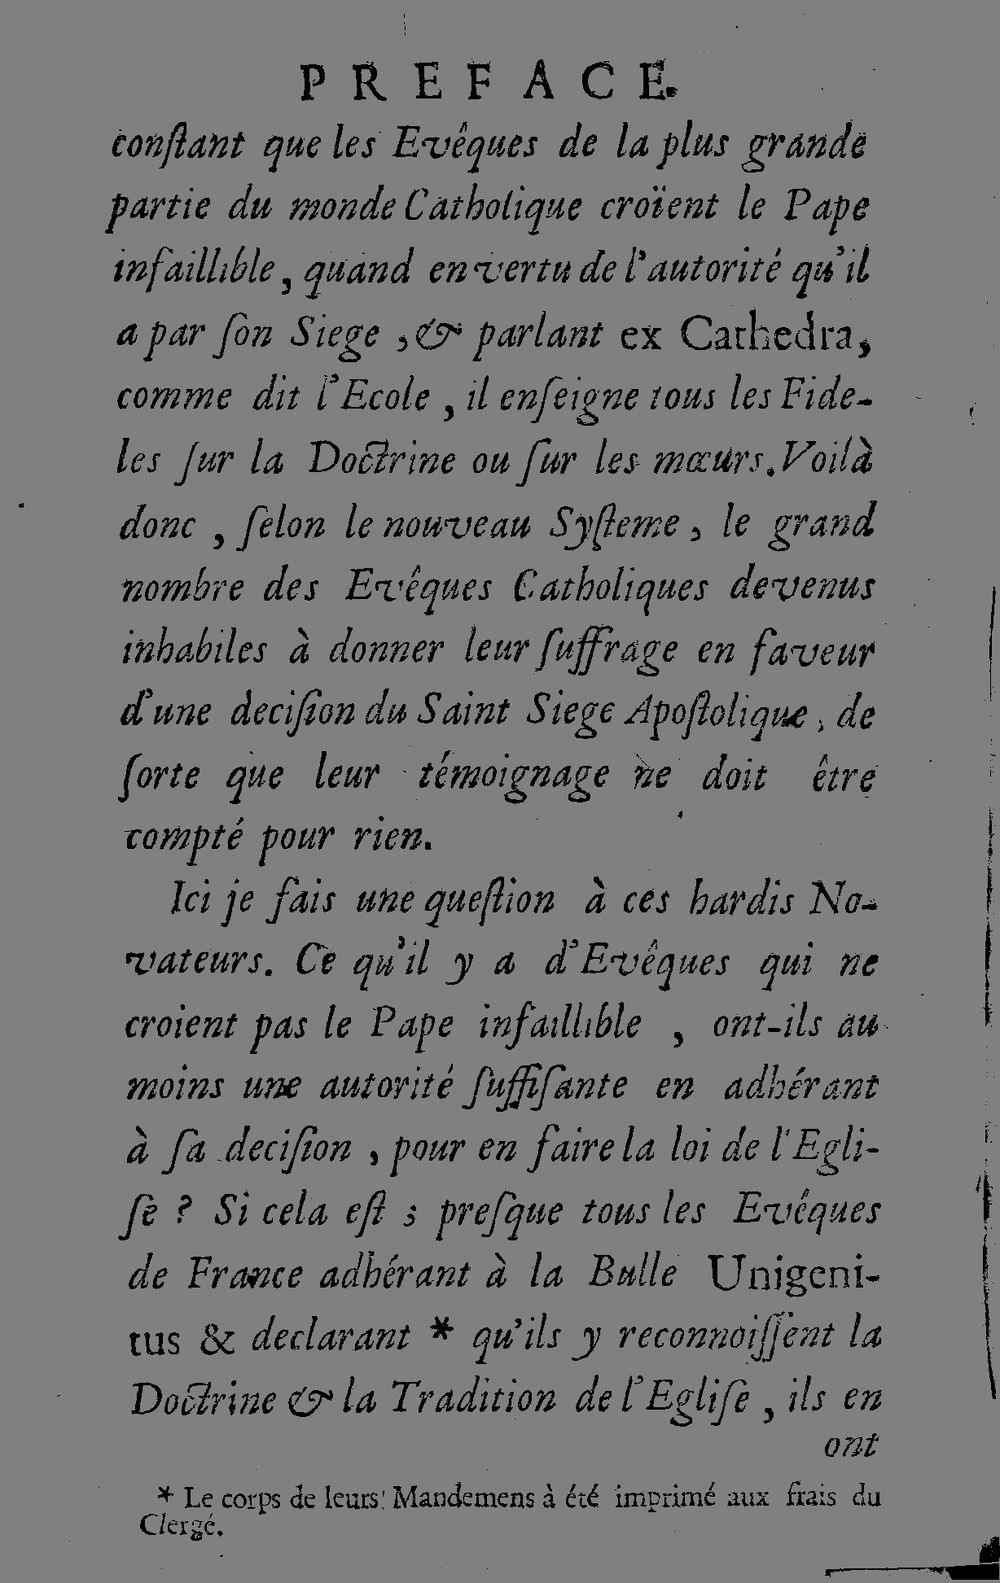 PREFACE.
conſtant que les Evêques de la plus grande
partie du monde Catholique croïent le Pape
infaillible, quand en vertu de l'autorité qu'il
a par ſon Siege, & parlant ex Cathedra,
comme dit l'Ecole, il enſeigne tous les Fide-
les ſur la Doctrine ou ſur les mœurs. Voilà
donc, ſelon le nouveau Syſteme, le grand
nombre des Evêques Catholiques devenus
inhabiles à donner leur ſuffrage en faveur
d'une deciſion du Saint Siege Apoſtolique, de
ſorte que leur témoignage ne doit être
compté pour rien.
Ici je fais une queſtion à ces hardis No-
vateurs. Ce qu'il y a d'Evêques qui ne
croient pas le Pape infaillible, ont-ils au
moins une autorité ſuffiſante en adhérant
à ſa deciſion, pour en faire la loi de l'Egli-
ſe? Si cela eſt; preſque tous les Evêques
de France adhérant à la Bulle Unigeni-
tus & declarant * qu'ils y reconnoiſſent la
Doctrine & la Tradition de l'Egliſe, ils en
ont
* Le corps de leurs Mandemens à été imprimé aux frais du
Clergé.